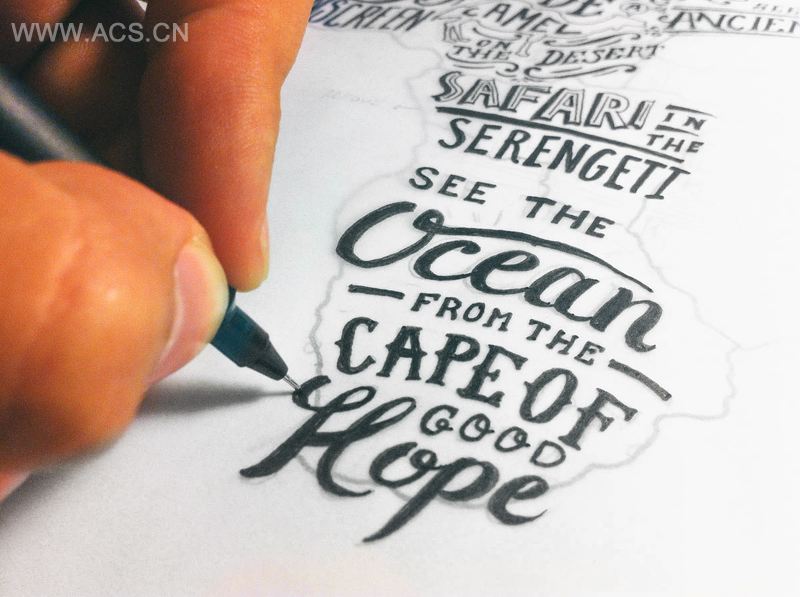 WWW.ACS.CN
SCREEN
CAMEL
ANCIEN
ON THE DESERT
SAFARI IN THE
SERENGETI
SEE THE
Ocean
FROM THE
CAPE OF
GOOD
Hope